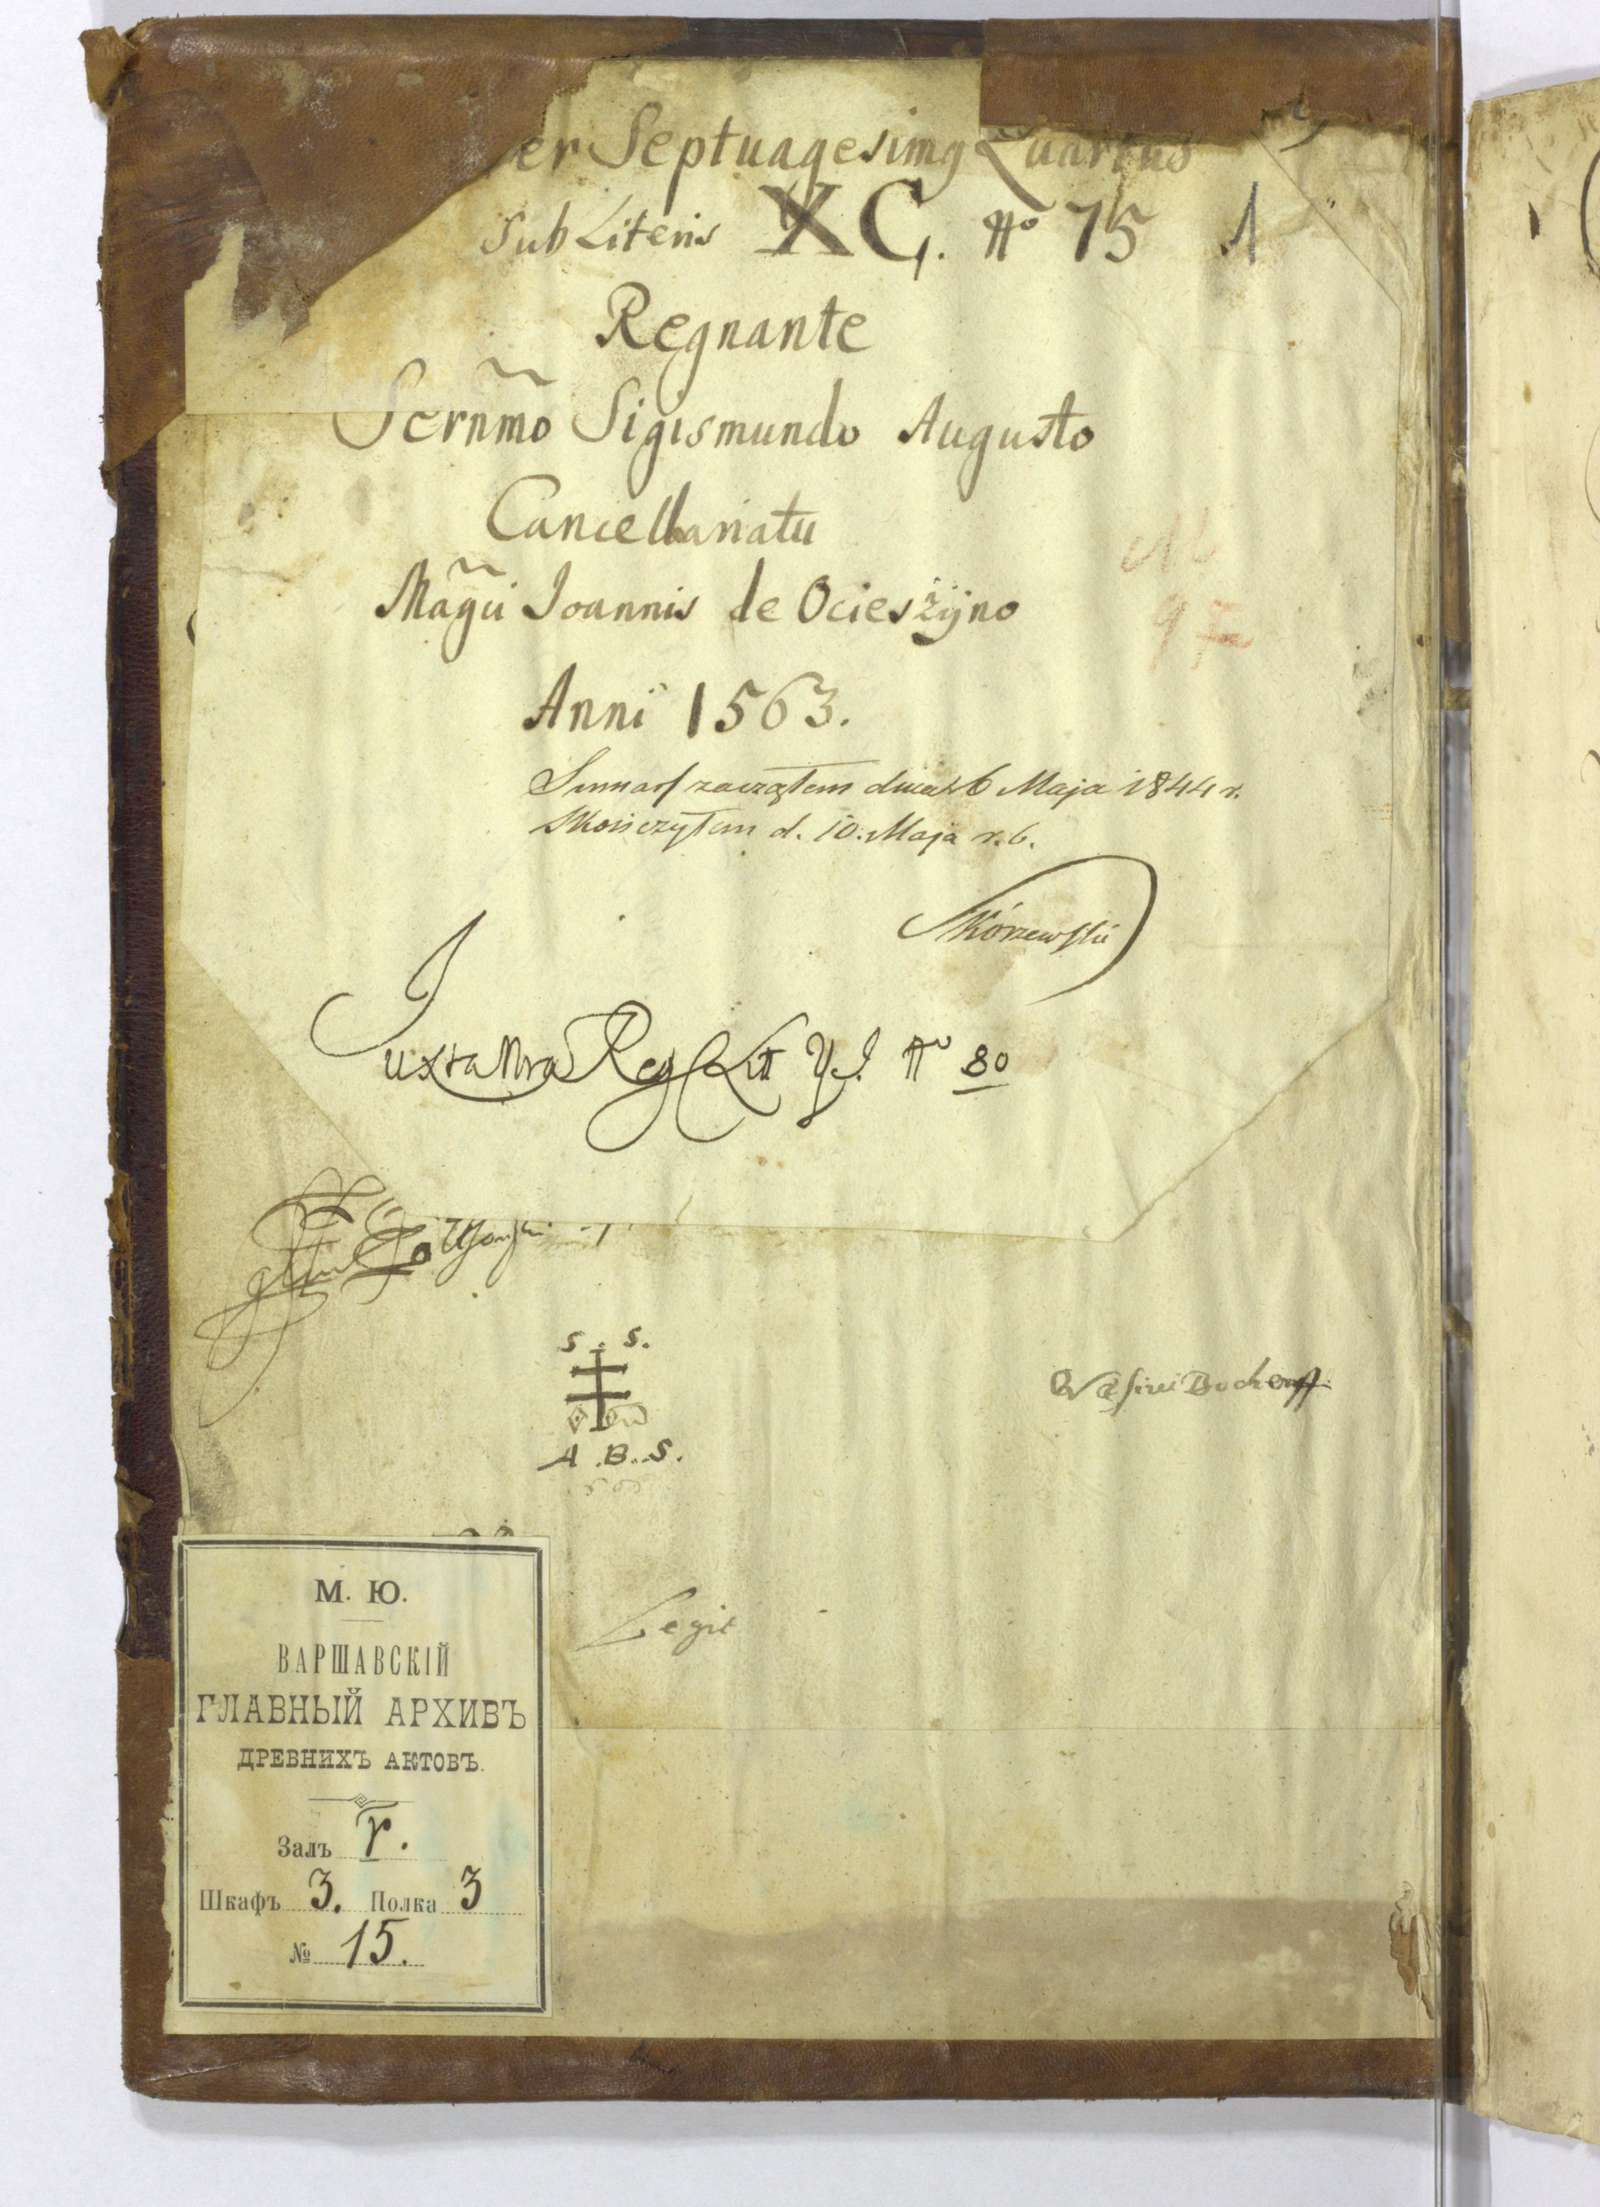 er Septuagesimg Quartus
Sub Literis XC. No 75 1
Regnante
Sernmo Sigismundo Augusto
Cancellariatu
Magci Joannis de Ociesżyno
Anni 1563.
Sumar zacząłem dnia 6 Maja 1844 r.
Skończyłem d. 10. Maja r. b.
Skórzewski
Juxta Nra Reg Litt Y J. No 80
S. S.
A. B. S.
Legit
М. Ю.
ВАРШАВСКІЙ
ГЛАВНЫЙ АРХИВЪ
ДРЕВНИХЪ АКТОВЪ.
Залъ
Шкафъ 3. Полка 3
№ 15.